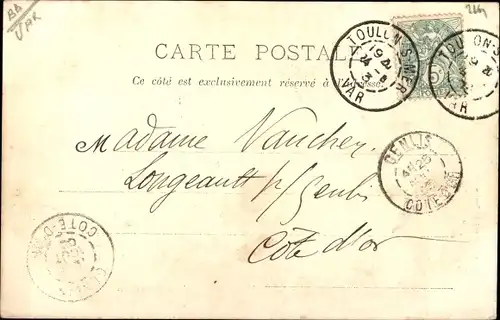 BB
VAR
CARTE POSTALE
Ce côté est exclusivement réservé à l'adresse.
TOULON-S-MER
VAR
TOULON-S
VAR
5
Madame Vaucher
Longeault p/ Genlis
Côte d'or
GENLIS
COTE-D'OR